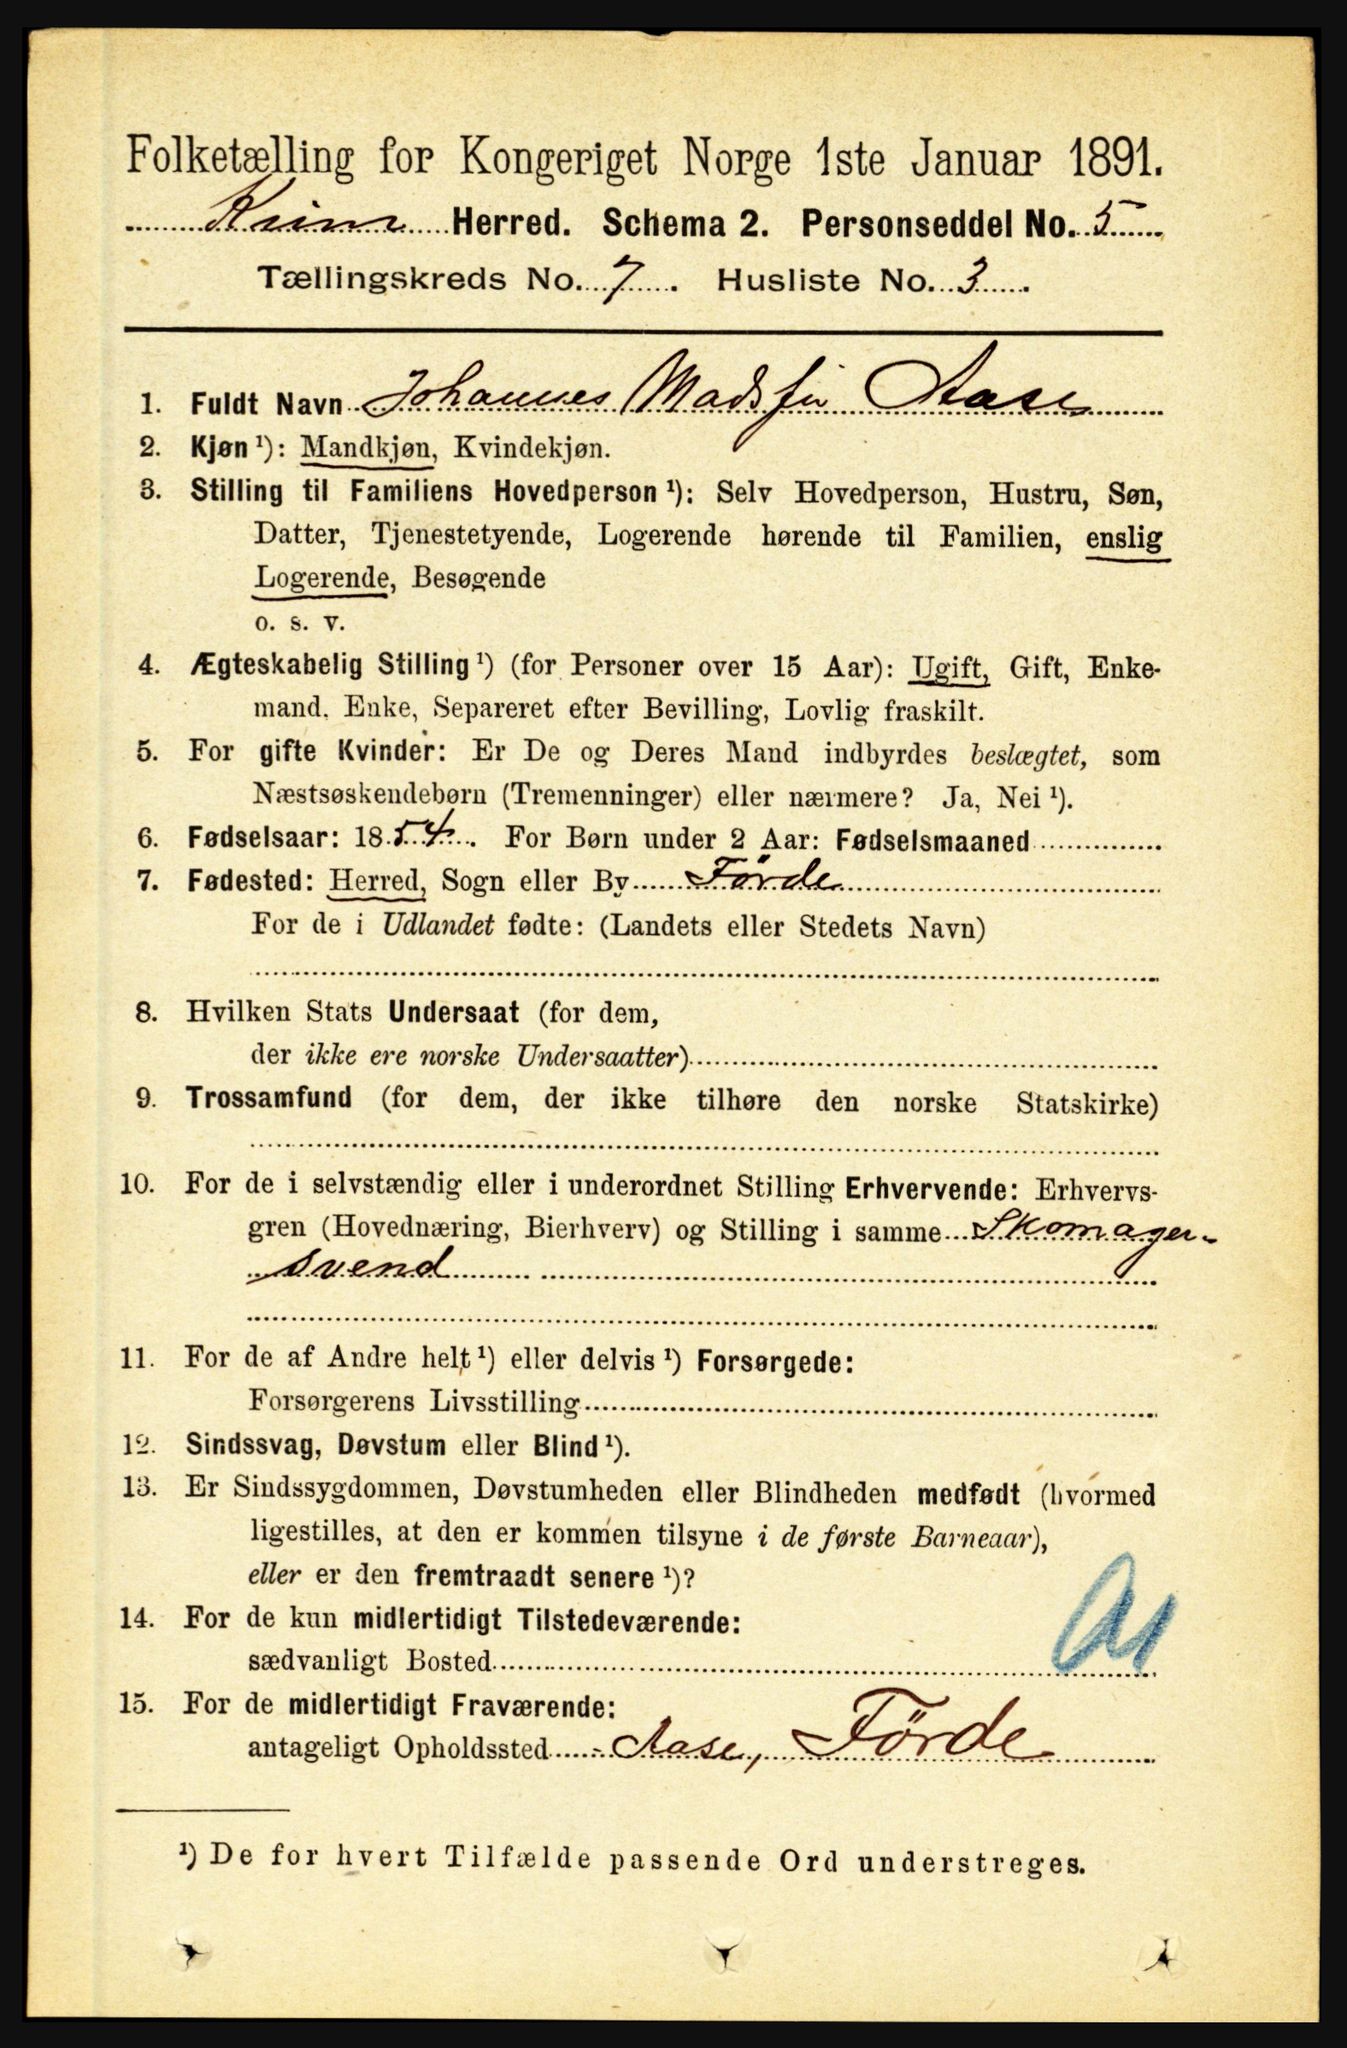 Folketælling for Kongeriget Norge 1ste Januar 1891.
Kinn Herred. Schema 2. Personseddel No. 5
Tællingskreds No. 7. Husliste No. 3
1. Fuldt Navn Johannes Madsen Aase
2. Kjøn ¹): Mandkjøn, Kvindekjøn.
3. Stilling til Familiens Hovedperson ¹): Selv Hovedperson, Hustru, Søn,
Datter, Tjenestetyende, Logerende hørende til Familien, enslig
Logerende, Besøgende
o. s. v.
4. Ægteskabelig Stilling ¹) (for Personer over 15 Aar): Ugift, Gift, Enke-
mand, Enke, Separeret efter Bevilling, Lovlig fraskilt.
5. For gifte Kvinder: Er De og Deres Mand indbyrdes beslægtet, som
Næstsøskendebørn (Tremenninger) eller nærmere? Ja, Nei ¹).
6. Fødselsaar: 1854. For Børn under 2 Aar: Fødselsmaaned
7. Fødested: Herred, Sogn eller By Förde
For de i Udlandet fødte: (Landets eller Stedets Navn)
8. Hvilken Stats Undersaat (for dem,
der ikke ere norske Undersaatter)
9. Trossamfund (for dem, der ikke tilhøre den norske Statskirke)
10. For de i selvstændig eller i underordnet Stilling Erhvervende: Erhvervs-
gren (Hovednæring, Bierhverv) og Stilling i samme Skomager-
svend
11. For de af Andre helt ¹) eller delvis ¹) Forsørgede:
Forsørgerens Livsstilling
12. Sindssvag, Døvstum eller Blind ¹).
13. Er Sindssygdommen, Døvstumheden eller Blindheden medfødt (hvormed
ligestilles, at den er kommen tilsyne i de første Barneaar),
eller er den fremtraadt senere ¹)?
14. For de kun midlertidigt Tilstedeværende:
sædvanligt Bosted
15. For de midlertidigt Fraværende:
antageligt Opholdssted Aase, Förde
¹) De for hvert Tilfælde passende Ord understreges.